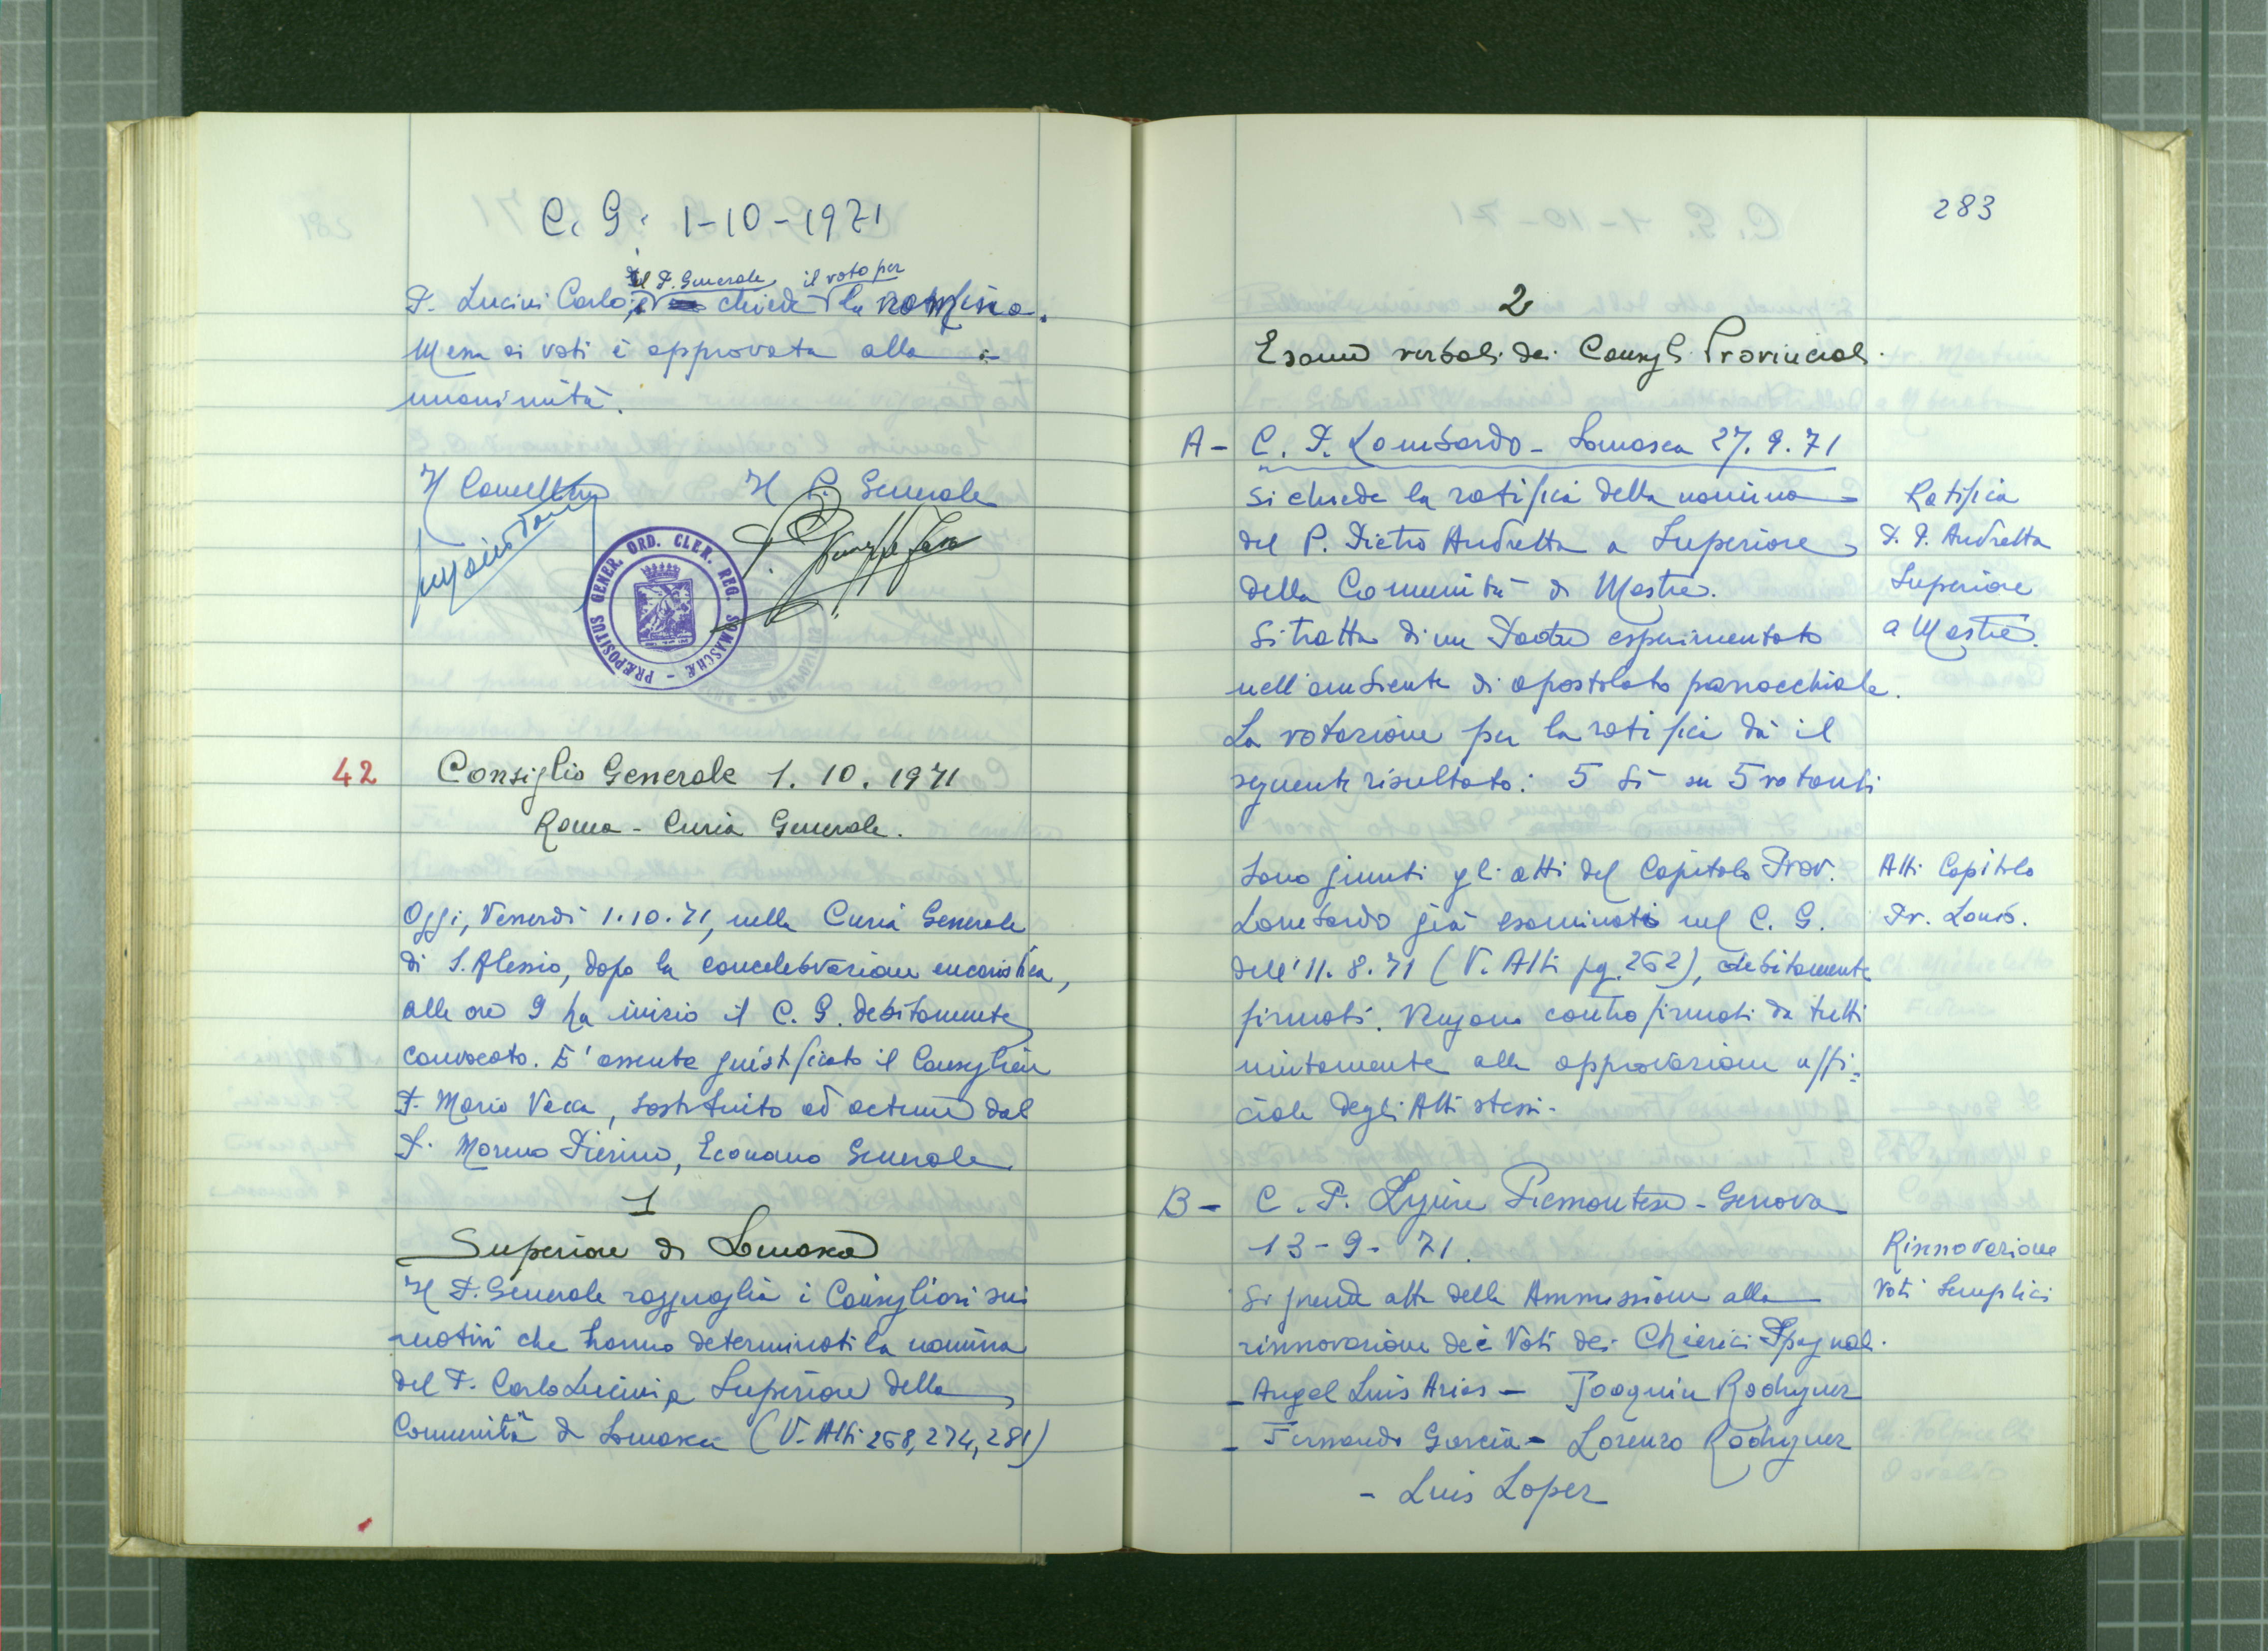 C. G. 1-10-1971
il P. Generale il voto per
P. Lucini Carlo, chiede la nomina.
Messa ai voti è approvata alla
unanimità.
Il Cancelliere Il P. Generale
PRÆPOSITUS GENER. ORD. CLER. REG. SOMASCHÆ
42 Consiglio Generale 1. 10. 1971
Roma - Curia Generale.
Oggi, Venerdì 1.10.71, nella Curia Generale
di S. Alessio, dopo la concelebrazione eucaristica,
alle ore 9 ha inizio il C. G. debitamente
convocato. E' assente giustificato il Consigliere
P. Mario Vacca, sostituito ad actum dal
P. Moreno Pierino, Economo Generale
1
Superiore di Somasca
Il P. Generale ragguaglia i Consiglieri sui
motivi che hanno determinati la nomina
del P. Carlo Lucini a Superiore della
Comunità di Somasca (V. Atti 268, 274, 281)
283
2
Esame verbali dei Consigli Provinciali.
A - C. P. Lombardo - Somasca 27. 9. 71
Si chiede la ratifica della nomina
del P. Pietro Andretta a Superiore
della Comunità di Mestre.
Si tratta di un Padre esperimentato
nell'ambiente di apostolato parrocchiale.
La votazione per la ratifica dà il
seguente risultato: 5 Sì su 5 votanti
Ratifica
P. P. Andretta
Superiore
a Mestre.
Sono giunti gli atti del Capitolo Prov.
Lombardo già esaminati nel C. G.
dell'11. 8. 71 (V. Atti pg. 262), debitamente
firmati. Vengono controfirmati da tutti
unitamente alla approvazione uffi=
ciale degli Atti stessi.
Atti Capitolo
Pr. Lomb.
B - C. P. Ligure Piemontese - Genova
13 - 9 - 71.
Si prende atto della Ammissione alla
rinnovazione dei Voti dei Chierici Spagnoli.
- Angel Luis Arias - Joaquin Rodriguez
- Fernando Garcia - Lorenzo Rodriguez
- Luis Lopez
Rinnovazione
Voti Semplici